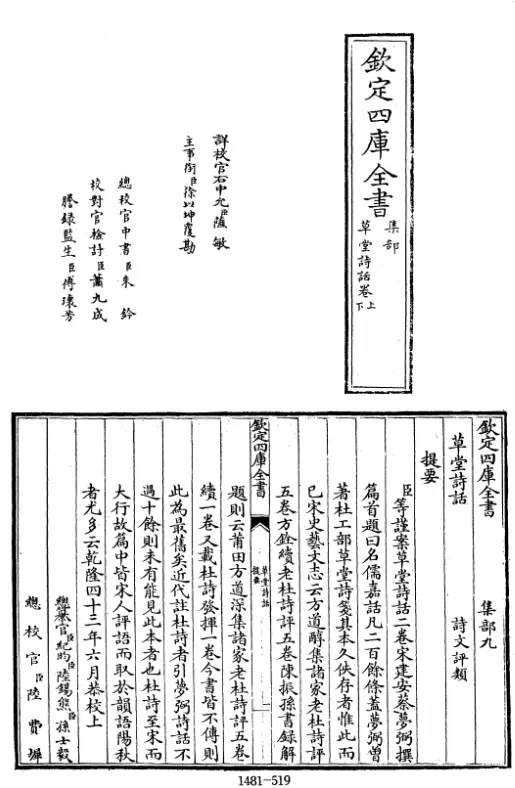 欽定四庫全書
集部
草堂詩話卷上下
詳校官右中允臣薩敏
主事銜臣徐以坤覆勘
總校官中書臣朱鈐
校對官檢討臣蕭九成
謄錄監生臣傅瓌芳
欽定四庫全書 集部九
草堂詩話 詩文評類
提要
臣等謹案草堂詩話二卷宋建安蔡夢弼撰
篇首題曰名儒嘉話凡二百餘條蓋夢弼曾
著杜工部草堂詩箋其本久佚存者惟此而
已宋史藝文志云方道醇集諸家老杜詩評
五卷方銓續老杜詩評五卷陳振孫書錄解
欽定四庫全書 草堂詩話 提要 一
題則云莆田方道深集諸家老杜詩評五卷
續一卷又載杜詩發揮一卷今書皆不傳則
此為最舊矣近代註杜詩者引夢弼詩話不
過十餘則未有能見此本者也杜詩至宋而
大行故篇中皆宋人評語而取於韻語陽秋
者尤多云乾隆四十三年六月恭校上
總纂官臣紀昀臣陸錫熊臣孫士毅
總校官臣陸費墀
1481-519